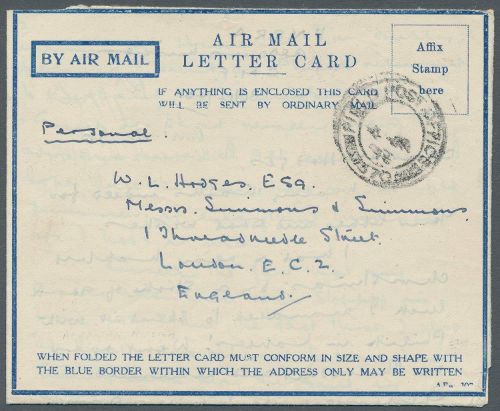 AIR MAIL
LETTER CARD
BY AIR MAIL
Affix
Stamp
here
IF ANYTHING IS ENCLOSED THIS CARD
WILL BE SENT BY ORDINARY MAIL
FIELD POST OFFICE
Personal.
W. L. Hodges. Esq.
Messrs. Simmons & Simmons
1 Threadneedle Street.
London. E.C.2.
England.
WHEN FOLDED THE LETTER CARD MUST CONFORM IN SIZE AND SHAPE WITH
THE BLUE BORDER WITHIN WHICH THE ADDRESS ONLY MAY BE WRITTEN